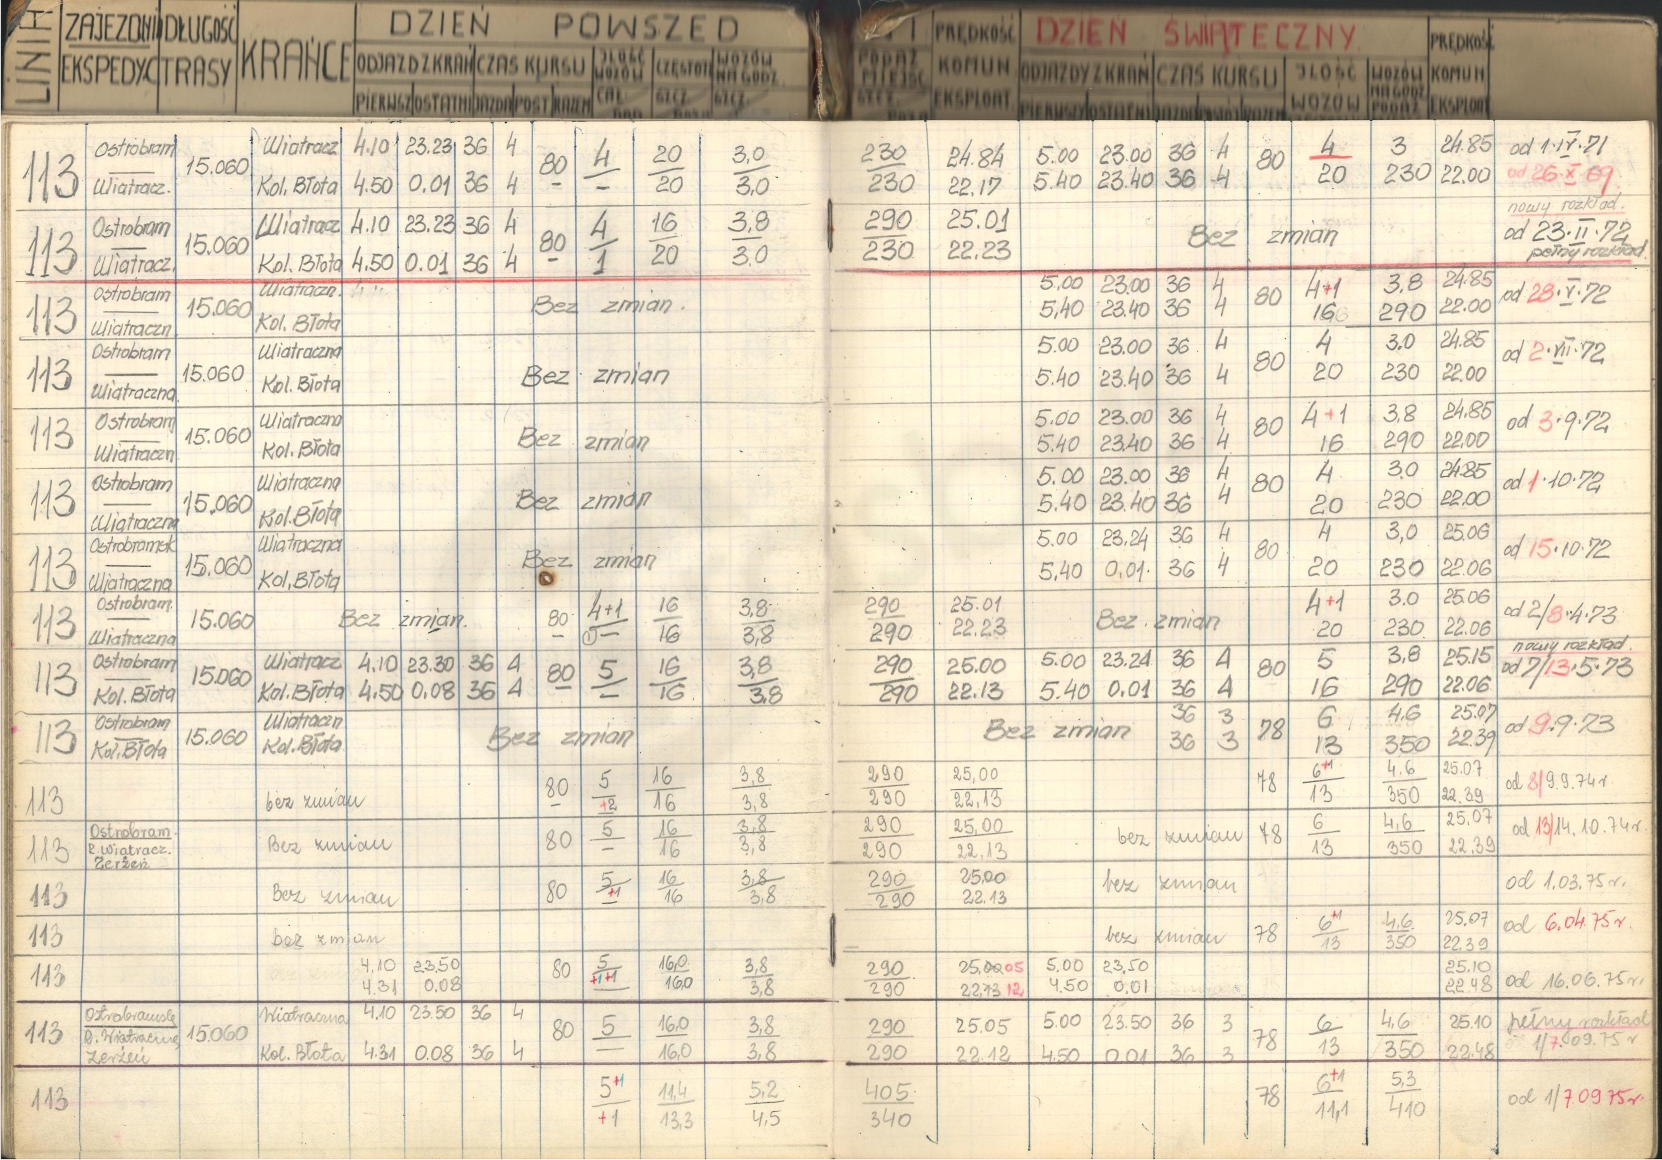 LINIA ZAJEZDNIA EKSPEDYC DŁUGOŚĆ TRASY KRAŃCE DZIEŃ POWSZED
ODJAZD Z KRAŃ CZAS KURSU ILOŚĆ WOZÓW CZĘSTOT WOZÓW NA GODZ.
PIERWSZ OSTATNI JAZDA POST. RAZEM CAŁ. SZCZ. SZCZ.
PODAŻ MIEJSC SZCZ. PRĘDKOŚĆ KOMUN EKSPLOAT. DZIEŃ ŚWIĄTECZNY PRĘDKOŚĆ KOMUN EKSPLOAT
ODJAZDY Z KRAŃ CZAS KURSU ILOŚĆ WOZÓW WOZÓW NA GODZ PODAŻ
PIERWSZ OSTATNI JAZDA RAZEM
113 Ostrobram 15.060 Wiatracz 4.10 23.23 36 4 80 4 20 3,0 230 24.84 5.00 23.00 36 4 80 4 3 24.85 od 1.IV.71
Wiatracz. Kol. Błota 4.50 0.01 36 4 – – 20 3,0 230 22.17 5.40 23.40 36 4 20 230 22.00 od 26.X.69
nowy rozkład.
113 Ostrobram 15.060 Wiatracz 4.10 23.23 36 4 80 4 16 3,8 290 25.01 Bez zmian od 23.II.72
Wiatracz. Kol. Błota 4.50 0.01 36 4 – 1 20 3.0 230 22.23 pełny rozkład.
113 Ostrobram 15.060 Wiatraczn. Bez zmian. 5.00 23.00 36 4 80 4+1 3,8 24.85 od 28.V.72
Wiatraczn Kol. Błota 5,40 23.40 36 4 16 290 22.00
113 Ostrobram 15.060 Wiatraczna Bez zmian 5.00 23.00 36 4 80 4 3,0 24.85 od 2.VII.72
Wiatraczna Kol. Błota 5.40 23.40 36 4 20 230 22.00
113 Ostrobram 15.060 Wiatraczna Bez zmian 5.00 23.00 36 4 80 4+1 3,8 24.85 od 3.9.72
Wiatraczn Kol. Błota 5.40 23.40 36 4 16 290 22.00
113 Ostrobram 15.060 Wiatraczna Bez zmian 5.00 23.00 36 4 80 4 3.0 24.85 od 1.10.72
Wiatraczna Kol. Błota 5.40 23.40 36 4 20 230 22.00
113 Ostrobramsk 15.060 Wiatraczna Bez zmian 5.00 23.24 36 4 80 4 3,0 25.06 od 15.10.72
Wiatraczna Kol. Błota 5,40 0,01. 36 4 20 230 22.06
113 Ostrobram. 15.060 Bez zmian. 80 4+1 16 3,8 290 25.01 Bez zmian 4+1 3.0 25.06 od 2/8.4.73
Wiatraczna – 1 – 16 3,8 290 22.23 20 230 22.06
nowy rozkład.
113 Ostrobram 15.060 Wiatracz 4.10 23.30 36 4 80 5 16 3,8 290 25.00 5.00 23.24 36 4 80 5 3,8 25.15 od 7/13.5.73
Kol. Błota Kol. Błota 4.50 0.08 36 4 – – 16 3,8 290 22.13 5.40 0.01 36 4 16 290 22.06
113 Ostrobram 15.060 Wiatraczn Bez zmian Bez zmian 36 3 78 6 4.6 25.07 od 9.9.73
Kol. Błota Kol. Błota 36 3 13 350 22.39
113 bez zmian 80 5 16 3,8 290 25,00 78 6+1 4.6 25.07 od 8/9.9.74r
– +2 16 3,8 290 22,13 13 350 22.39
113 Ostrobram. Bez zmian 80 5 16 3,8 290 25,00 bez zmian 78 6 4,6 25.07 od 13/14.10.74r.
R. Wiatracz. – 16 3,8 290 22,13 13 350 22.39
Zerżeń
113 Bez zmian 80 5 16 3,8 290 25,00 bez zmian od 1.03.75r.
+1 16 3,8 290 22.13
113 bez zmian bez zmian 78 6+1 4,6 25.07 od 6.04.75r.
13 350 22.39
113 4.10 23.50 80 5 16,0 3,8 290 25,00 05 5.00 23,50 25.10 od 16.06.75r.
4.31 0.08 +1+1 16,0 3,8 290 22,13 12 4.50 0.01 22.48
113 Ostrobramsk 15.060 Wiatraczna 4.10 23.50 36 4 80 5 16.0 3,8 290 25.05 5.00 23.50 36 3 78 6 4,6 25.10 pełny rozkład
R. Wiatraczna Kol. Błota 4.31 0.08 36 4 – 16,0 3,8 290 22.12 4.50 0.01 36 3 13 350 22.48 1/7.09.75r
Zerżeń
113 5+1 11,4 5,2 405 78 6+1 5,3 od 1/7.09 75r.
+1 13,3 4,5 340 11,1 410